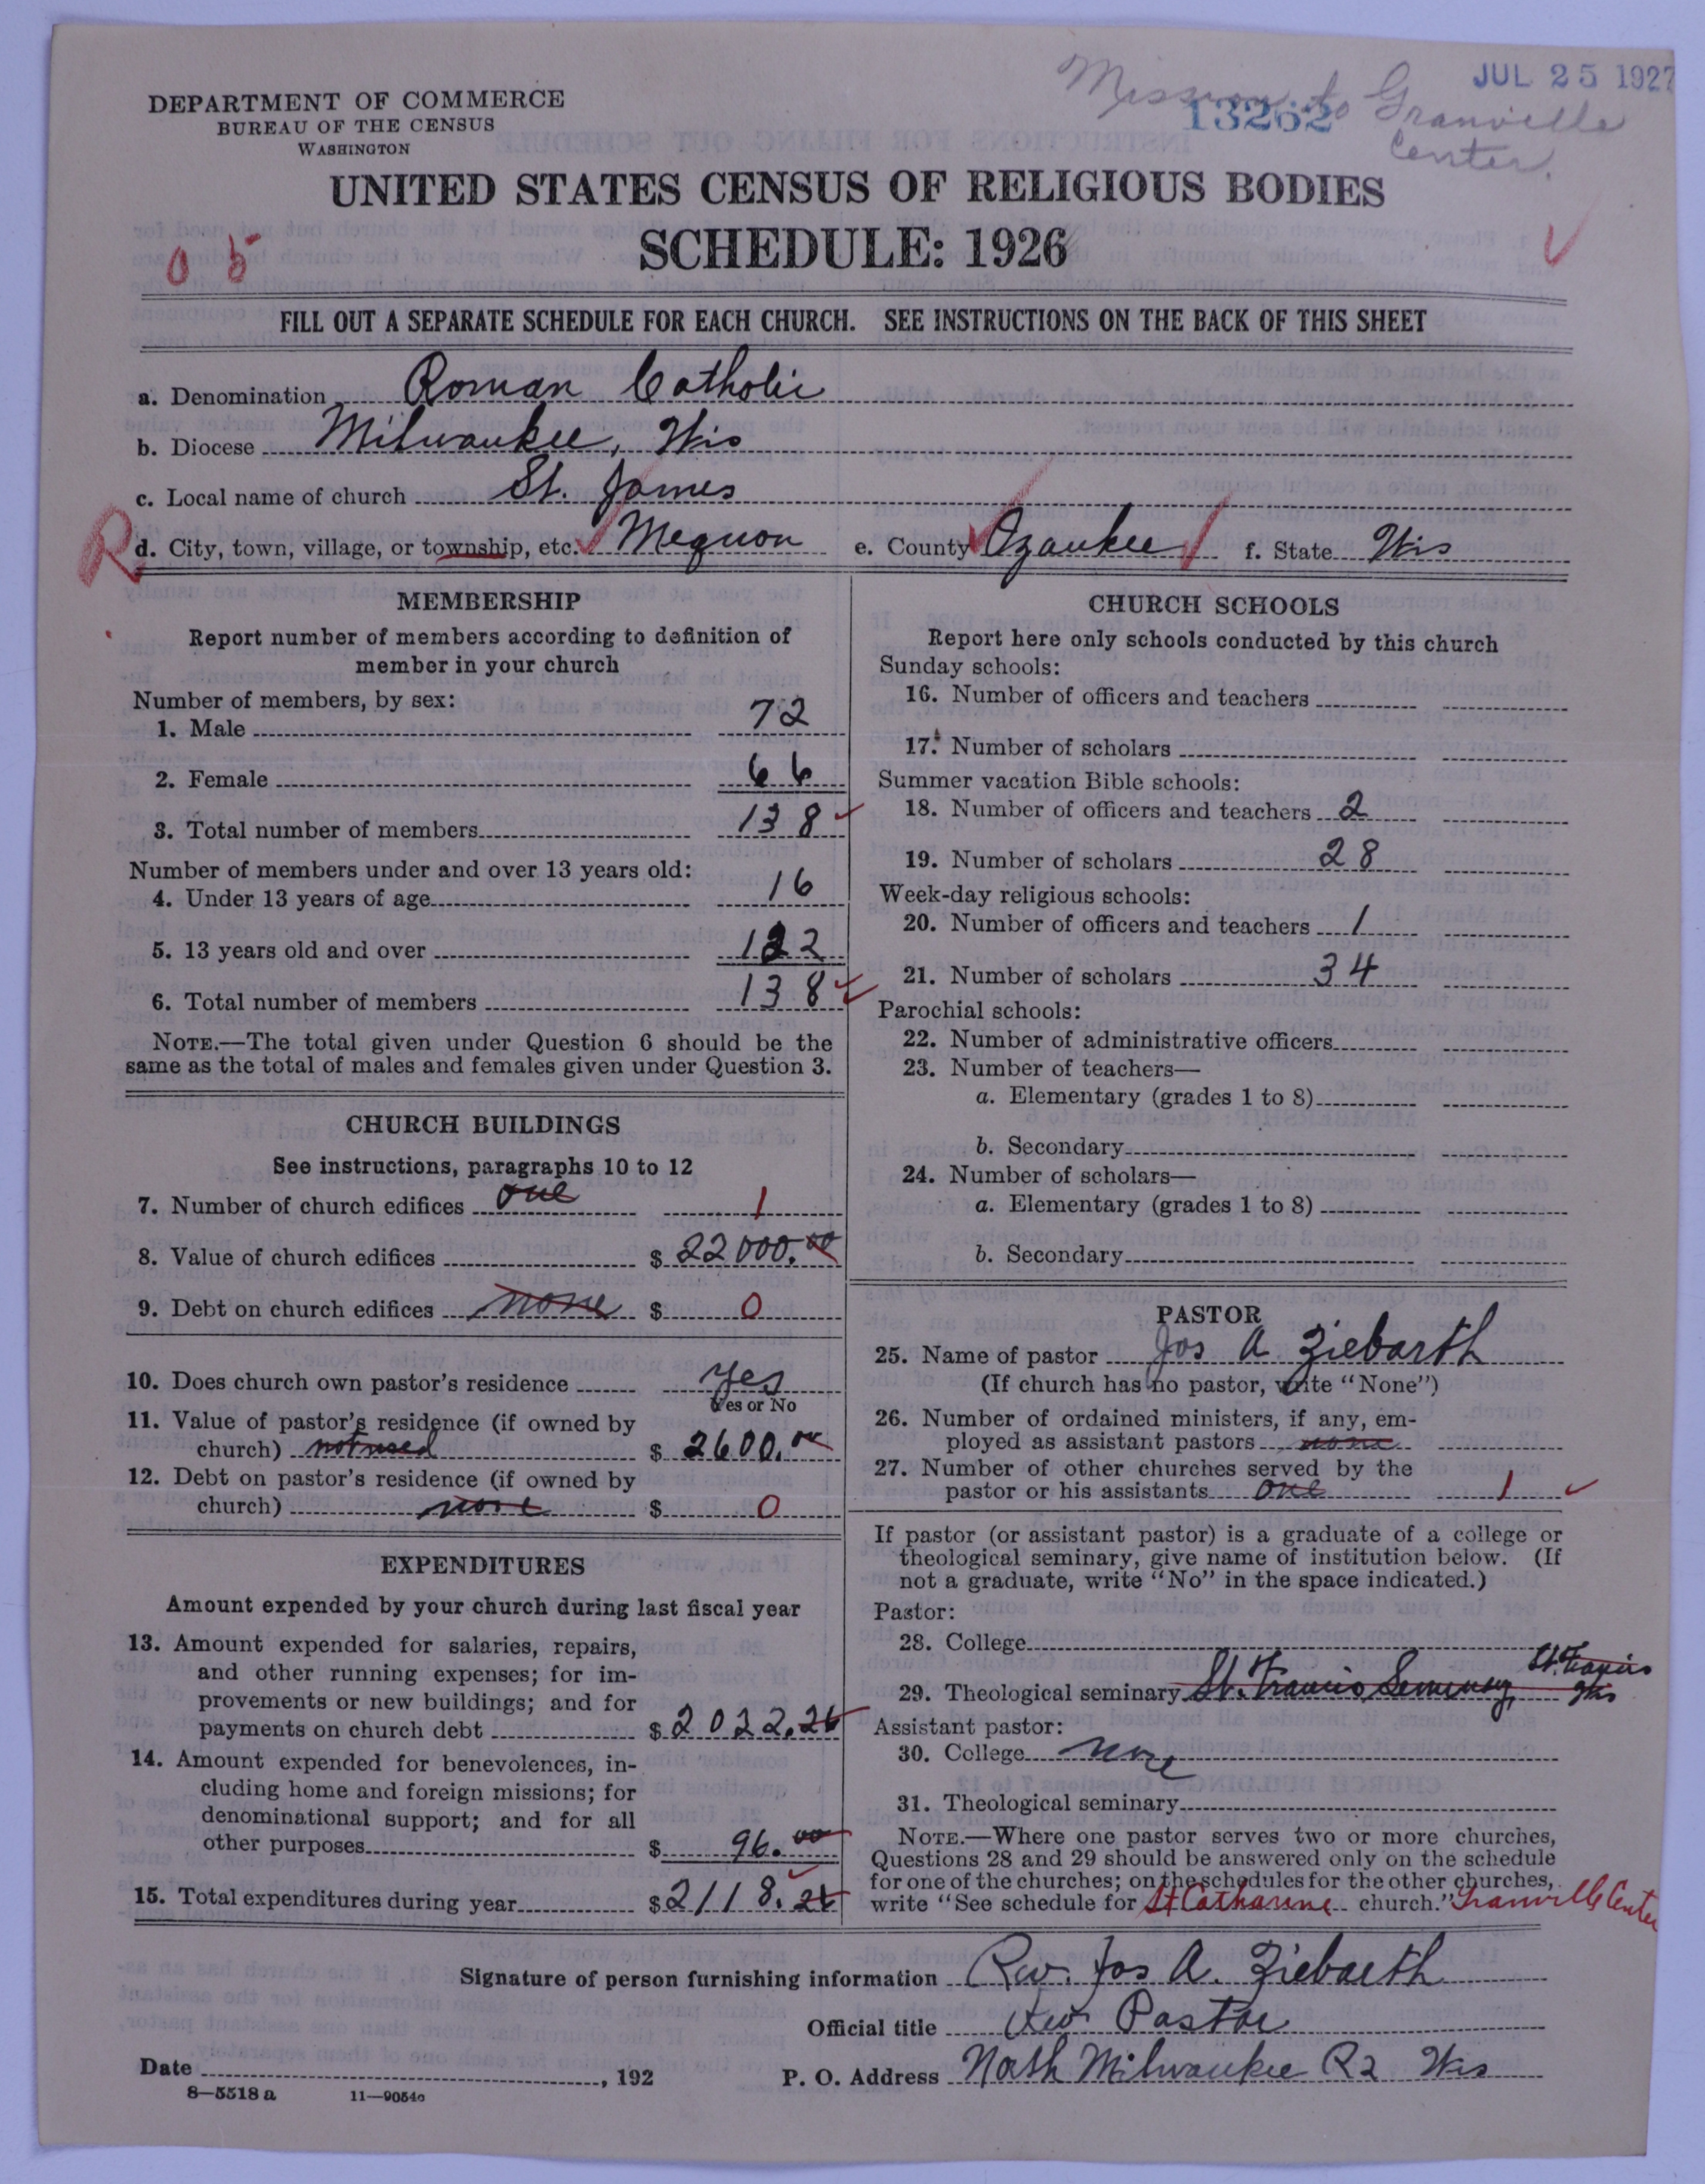 JUL 25 1927
Mission to Granville
13262
Center.
DEPARTMENT OF COMMERCE
BUREAU OF THE CENSUS
WASHINGTON
UNITED STATES CENSUS OF RELIGIOUS BODIES
SCHEDULE: 1926
0 5
FILL OUT A SEPARATE SCHEDULE FOR EACH CHURCH. SEE INSTRUCTIONS ON THE BACK OF THIS SHEET
a. Denomination Roman Catholic
b. Diocese Milwaukee, Wis
c. Local name of church St. James
R d. City, town, village, or township, etc. Mequon e. County Ozaukee f. State Wis
MEMBERSHIP
Report number of members according to definition of
member in your church
Number of members, by sex:
1. Male 72
2. Female 66
3. Total number of members 138
Number of members under and over 13 years old:
4. Under 13 years of age 16
5. 13 years old and over 122
6. Total number of members 138
NOTE.—The total given under Question 6 should be the
same as the total of males and females given under Question 3.
CHURCH BUILDINGS
See instructions, paragraphs 10 to 12
7. Number of church edifices one 1
8. Value of church edifices $ 22000.00
9. Debt on church edifices none $ 0
10. Does church own pastor's residence yes
Yes or No
11. Value of pastor's residence (if owned by
church) not used $ 2600.00
12. Debt on pastor's residence (if owned by
church) none $ 0
EXPENDITURES
Amount expended by your church during last fiscal year
13. Amount expended for salaries, repairs,
and other running expenses; for im-
provements or new buildings; and for
payments on church debt $ 2022.26
14. Amount expended for benevolences, in-
cluding home and foreign missions; for
denominational support; and for all
other purposes $ 96.00
15. Total expenditures during year $ 2118.26
CHURCH SCHOOLS
Report here only schools conducted by this church
Sunday schools:
16. Number of officers and teachers
17. Number of scholars
Summer vacation Bible schools:
18. Number of officers and teachers 2
19. Number of scholars 28
Week-day religious schools:
20. Number of officers and teachers 1
21. Number of scholars 34
Parochial schools:
22. Number of administrative officers
23. Number of teachers—
a. Elementary (grades 1 to 8)
b. Secondary
24. Number of scholars—
a. Elementary (grades 1 to 8)
b. Secondary
PASTOR
25. Name of pastor Jos A Ziebarth
(If church has no pastor, write "None")
26. Number of ordained ministers, if any, em-
ployed as assistant pastors none
27. Number of other churches served by the
pastor or his assistants one 1
If pastor (or assistant pastor) is a graduate of a college or
theological seminary, give name of institution below. (If
not a graduate, write "No" in the space indicated.)
Pastor:
28. College
29. Theological seminary St. Francis Seminary, St. Francis Wis
Assistant pastor:
30. College none
31. Theological seminary
NOTE.—Where one pastor serves two or more churches,
Questions 28 and 29 should be answered only on the schedule
for one of the churches; on the schedules for the other churches,
write "See schedule for St Catharine church." Granville Center
Signature of person furnishing information Rev. Jos A. Ziebarth
Official title Rev. Pastor
Date , 192 P. O. Address North Milwaukee R2 Wis
8—5518 a 11—9054c